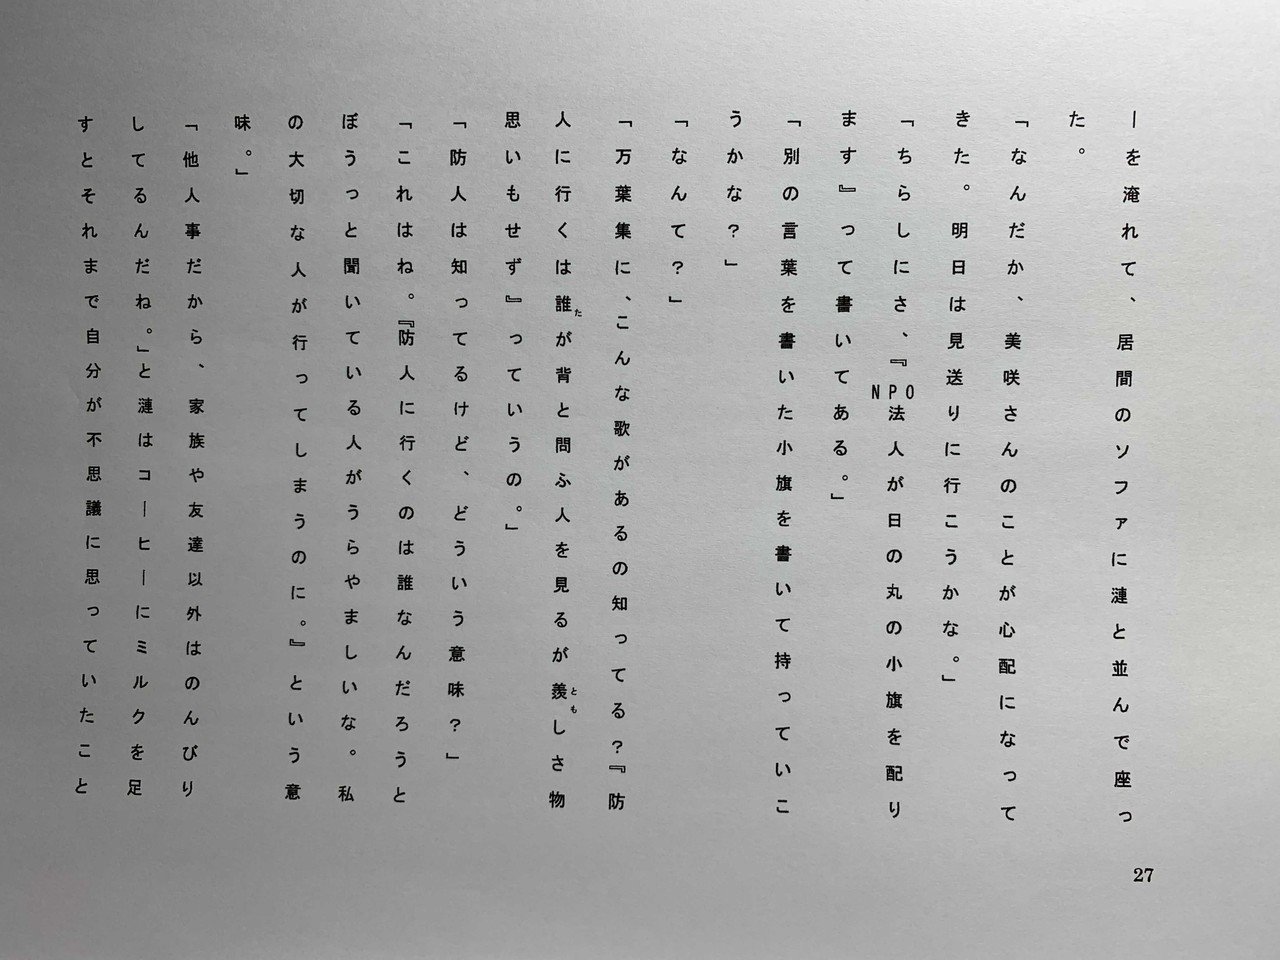 ーを淹れて、居間のソファに漣と並んで座っ
た。
「なんだか、美咲さんのことが心配になって
きた。明日は見送りに行こうかな。」
「ちらしにさ、『NPO法人が日の丸の小旗を配り
ます』って書いてある。」
「別の言葉を書いた小旗を書いて持っていこ
うかな？」
「なんて？」
「万葉集に、こんな歌があるの知ってる？『防
人に行くは誰たが背と問ふ人を見るが羨ともしさ物
思いもせず』っていうの。」
「防人は知ってるけど、どういう意味？」
「これはね。『防人に行くのは誰なんだろうと
ぼうっと聞いている人がうらやましいな。私
の大切な人が行ってしまうのに。』という意
味。」
「他人事だから、家族や友達以外はのんびり
してるんだね。」と漣はコーヒーにミルクを足
すとそれまで自分が不思議に思っていたこと
27